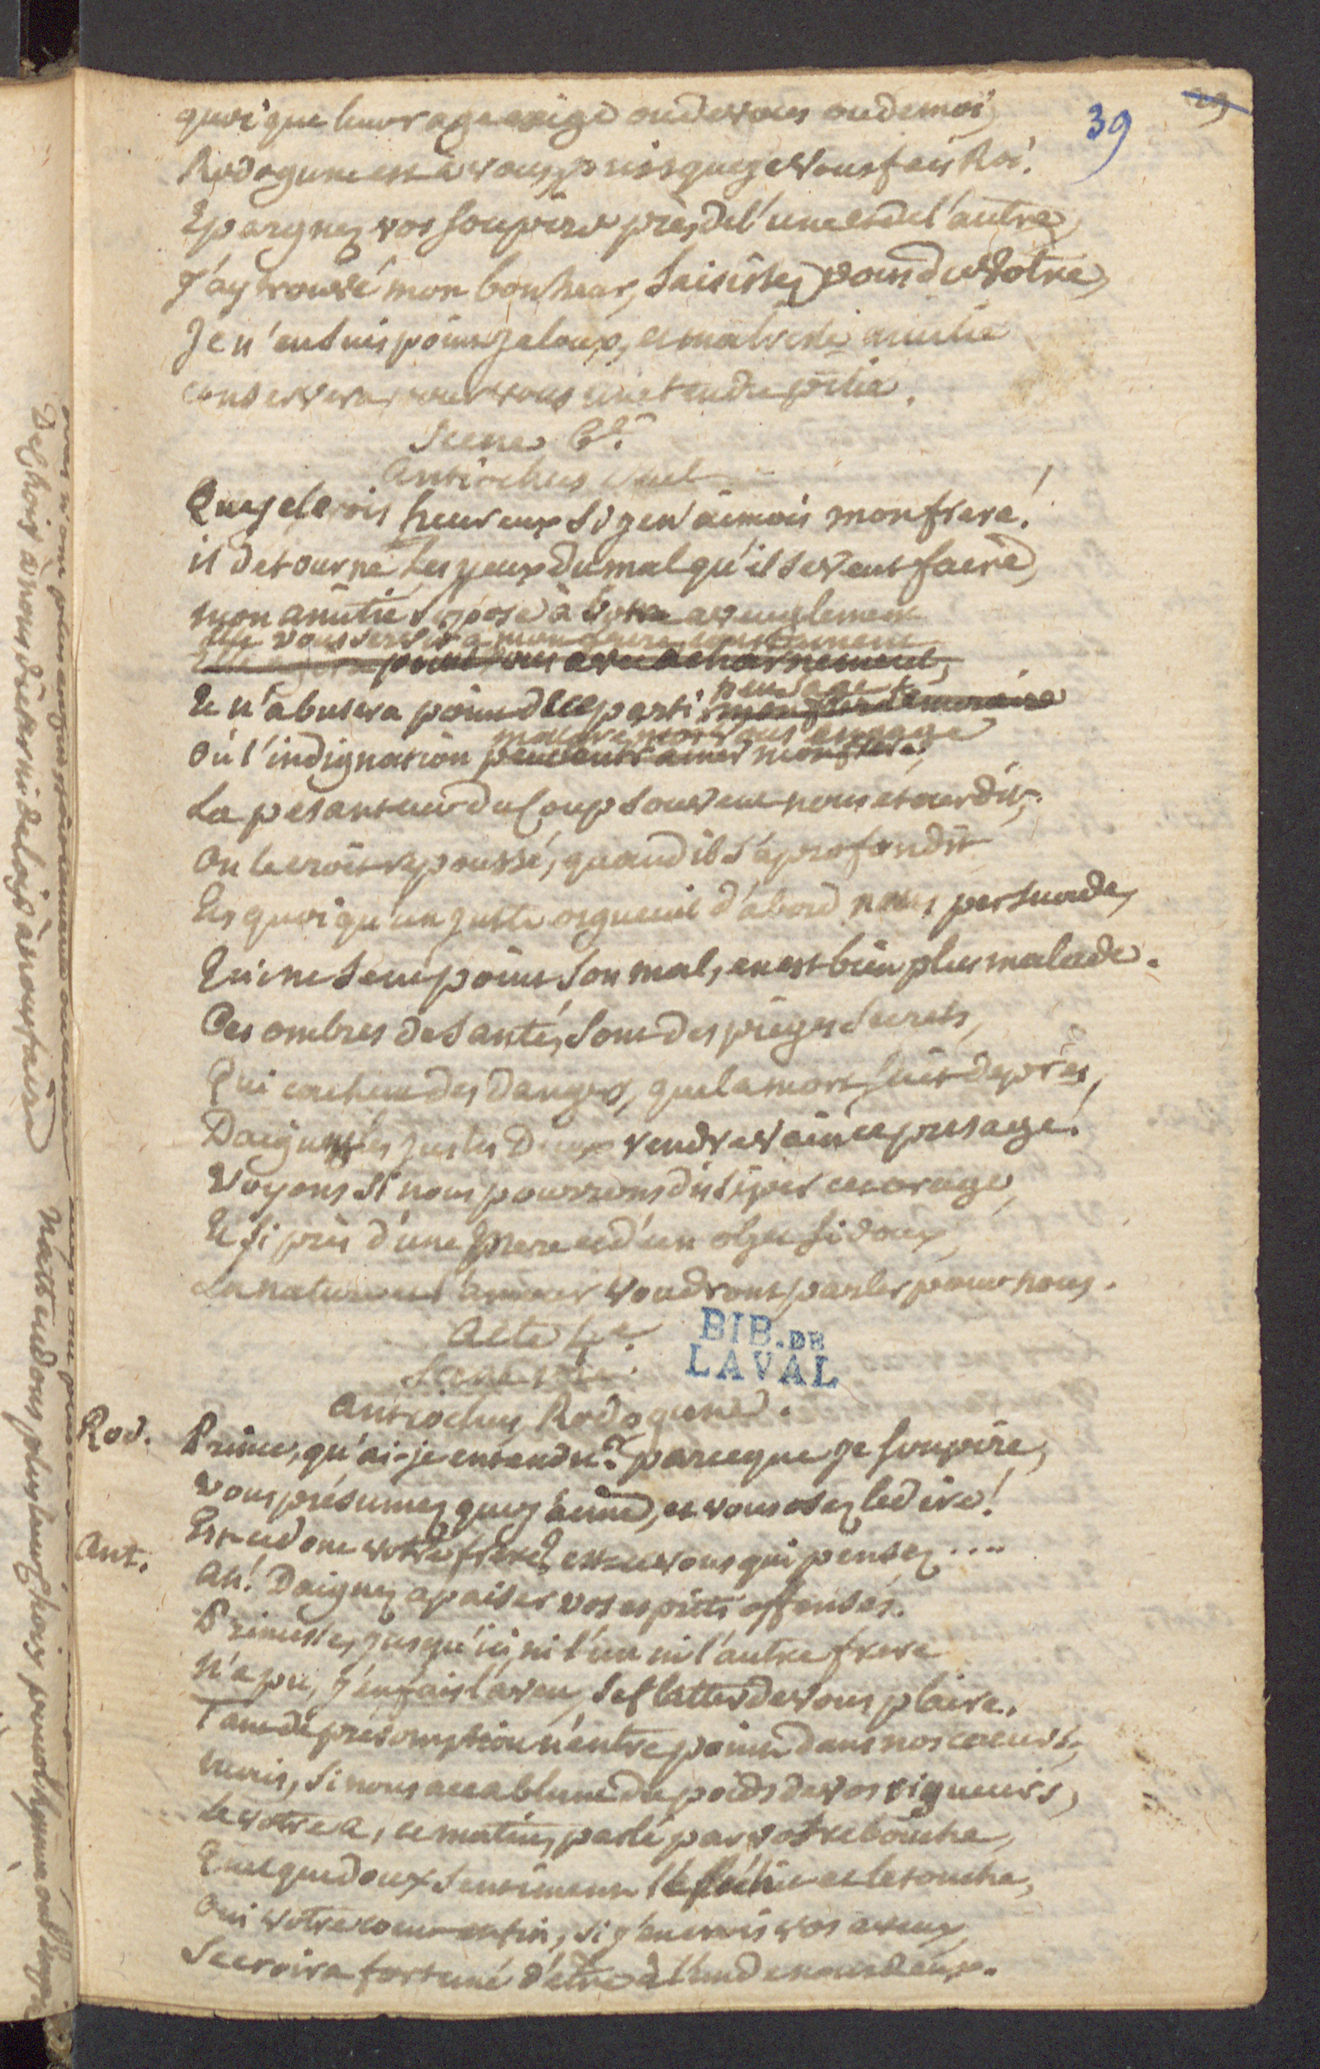 39
quoique leur rage exige ou de vous ou de moi,
Rodogune est à vous, puisque je vous fais Roi.
Epargnez vos soupirs près de l'une et de l'autre,
J'ay trouvé mon bonheur, saisissez du votre,
Je n'en suis point jaloux, et ma amitié
conservera pour vous une tendre pitié.
Scene 6e.
Antiochus seul
Que je serois heureux si je n'aimois mon frere!
il detourne les yeux du mal qu'il se veut faire,
mon amitié s'opose à votre aveuglement
point vous avec acharnement,
Et n'abusera point de ce parti peu sage
Où l'indignation malgré moi vous engage
La pesanteur du Coup souvent nous etourdit,
On le croit repoussé, quand il s'aprofondit
Et quoi qu'un juste orgueuil d'abord nous persuade,
Qui ne sent point son mal, en est bien plus malade.
Ces ombres de santé, sont des pièges secrets,
Qui cachent des dangers, que la mort suit de près,
Daignent les justes Dieux rendre vain ce présage!
Voyons si nous pourrons dissiper cet orage,
Et si près d'une Mere et d'un objet si doux,
La nature et l'amour voudront parler pour nous.
Acte 4e.
Scene 1re.
Antiochus, Rodogune.
BIB. DE
LAVAL
Rod. Prince, qu'ai-je entendu? parce que je soupire,
Vous présumez que j'aime, et vous osez le dire!
Est-ce donc votre frere, est-ce vous qui pensez....
Ant. Ah! Daignez apaiser vos esprits offensés.
Princesse, jusqu'ici, ni l'un ni l'autre frere
N'a pu, j'en fais l'aveu, se flatter de vous plaire.
Tant de présomption n'entre point dans nos coeurs,
Mais, si nous accablant du poids de vos rigueurs,
Le votre a, ce matin, parlé par votre bouche,
Quelque doux sentiment le fléchit et le touche,
Oui votre coeur enfin, si j'en crois vos aveux,
Se croira fortuné d'être à l'un de nous deux.